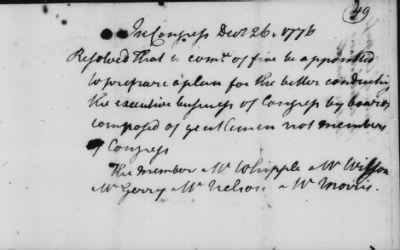 49
In Congress Decr 26. 1776
Resolved That a comee of five be appointed
to prepare a plan for the better conducting
the executive business of Congress by boards
composed of gentlemen not members
of Congress
The member Mr Whipple Mr Wilson
Mr Gerry Mr Nelson & Mr Morris.